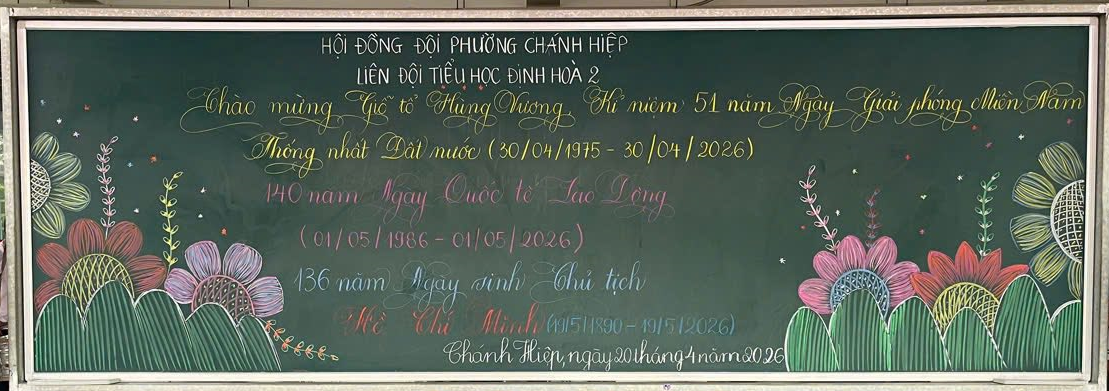 HỘI ĐỒNG ĐỘI PHƯỜNG CHÁNH HIỆP
LIÊN ĐỘI TIỂU HỌC ĐỊNH HOÀ 2
Chào mừng Giỗ tổ Hùng Vương, Kỉ niệm 51 năm Ngày Giải phóng Miền Nam
Thống nhất Đất nước (30/04/1975 - 30/04/2026)
140 năm Ngày Quốc tế Lao Động
(01/05/1986 - 01/05/2026)
136 năm Ngày sinh Chủ tịch
Hồ Chí Minh (19/5/1890 - 19/5/2026)
Chánh Hiệp, ngày 20 tháng 4 năm 2026